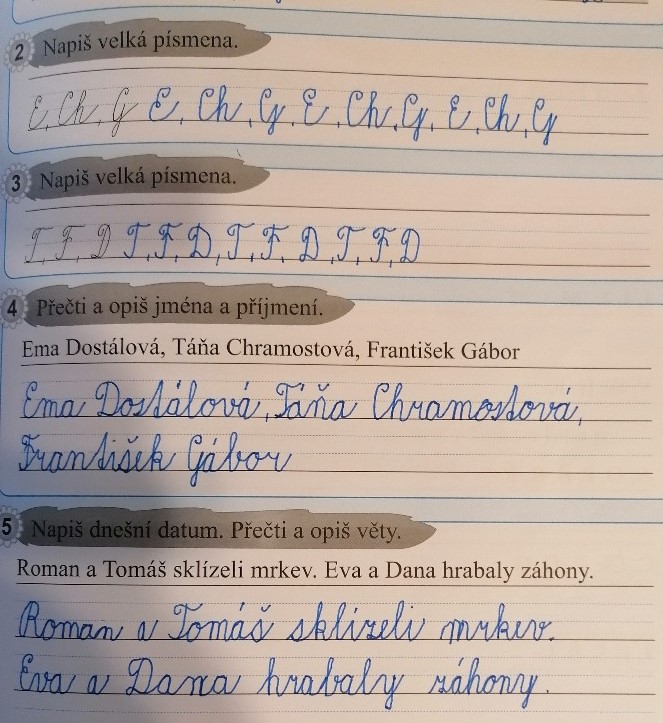 2 Napiš velká písmena.
E, Ch, G E, Ch, G, E, Ch, G, E, Ch, G
3 Napiš velká písmena.
T, F, D T, F, D, T, F, D, T, F, D
4 Přečti a opiš jména a příjmení.
Ema Dostálová, Táňa Chramostová, František Gábor
Ema Dostálová, Táňa Chramostová,
František Gábor
5 Napiš dnešní datum. Přečti a opiš věty.
Roman a Tomáš sklízeli mrkev. Eva a Dana hrabaly záhony.
Roman a Tomáš sklízeli mrkev.
Eva a Dana hrabaly záhony.